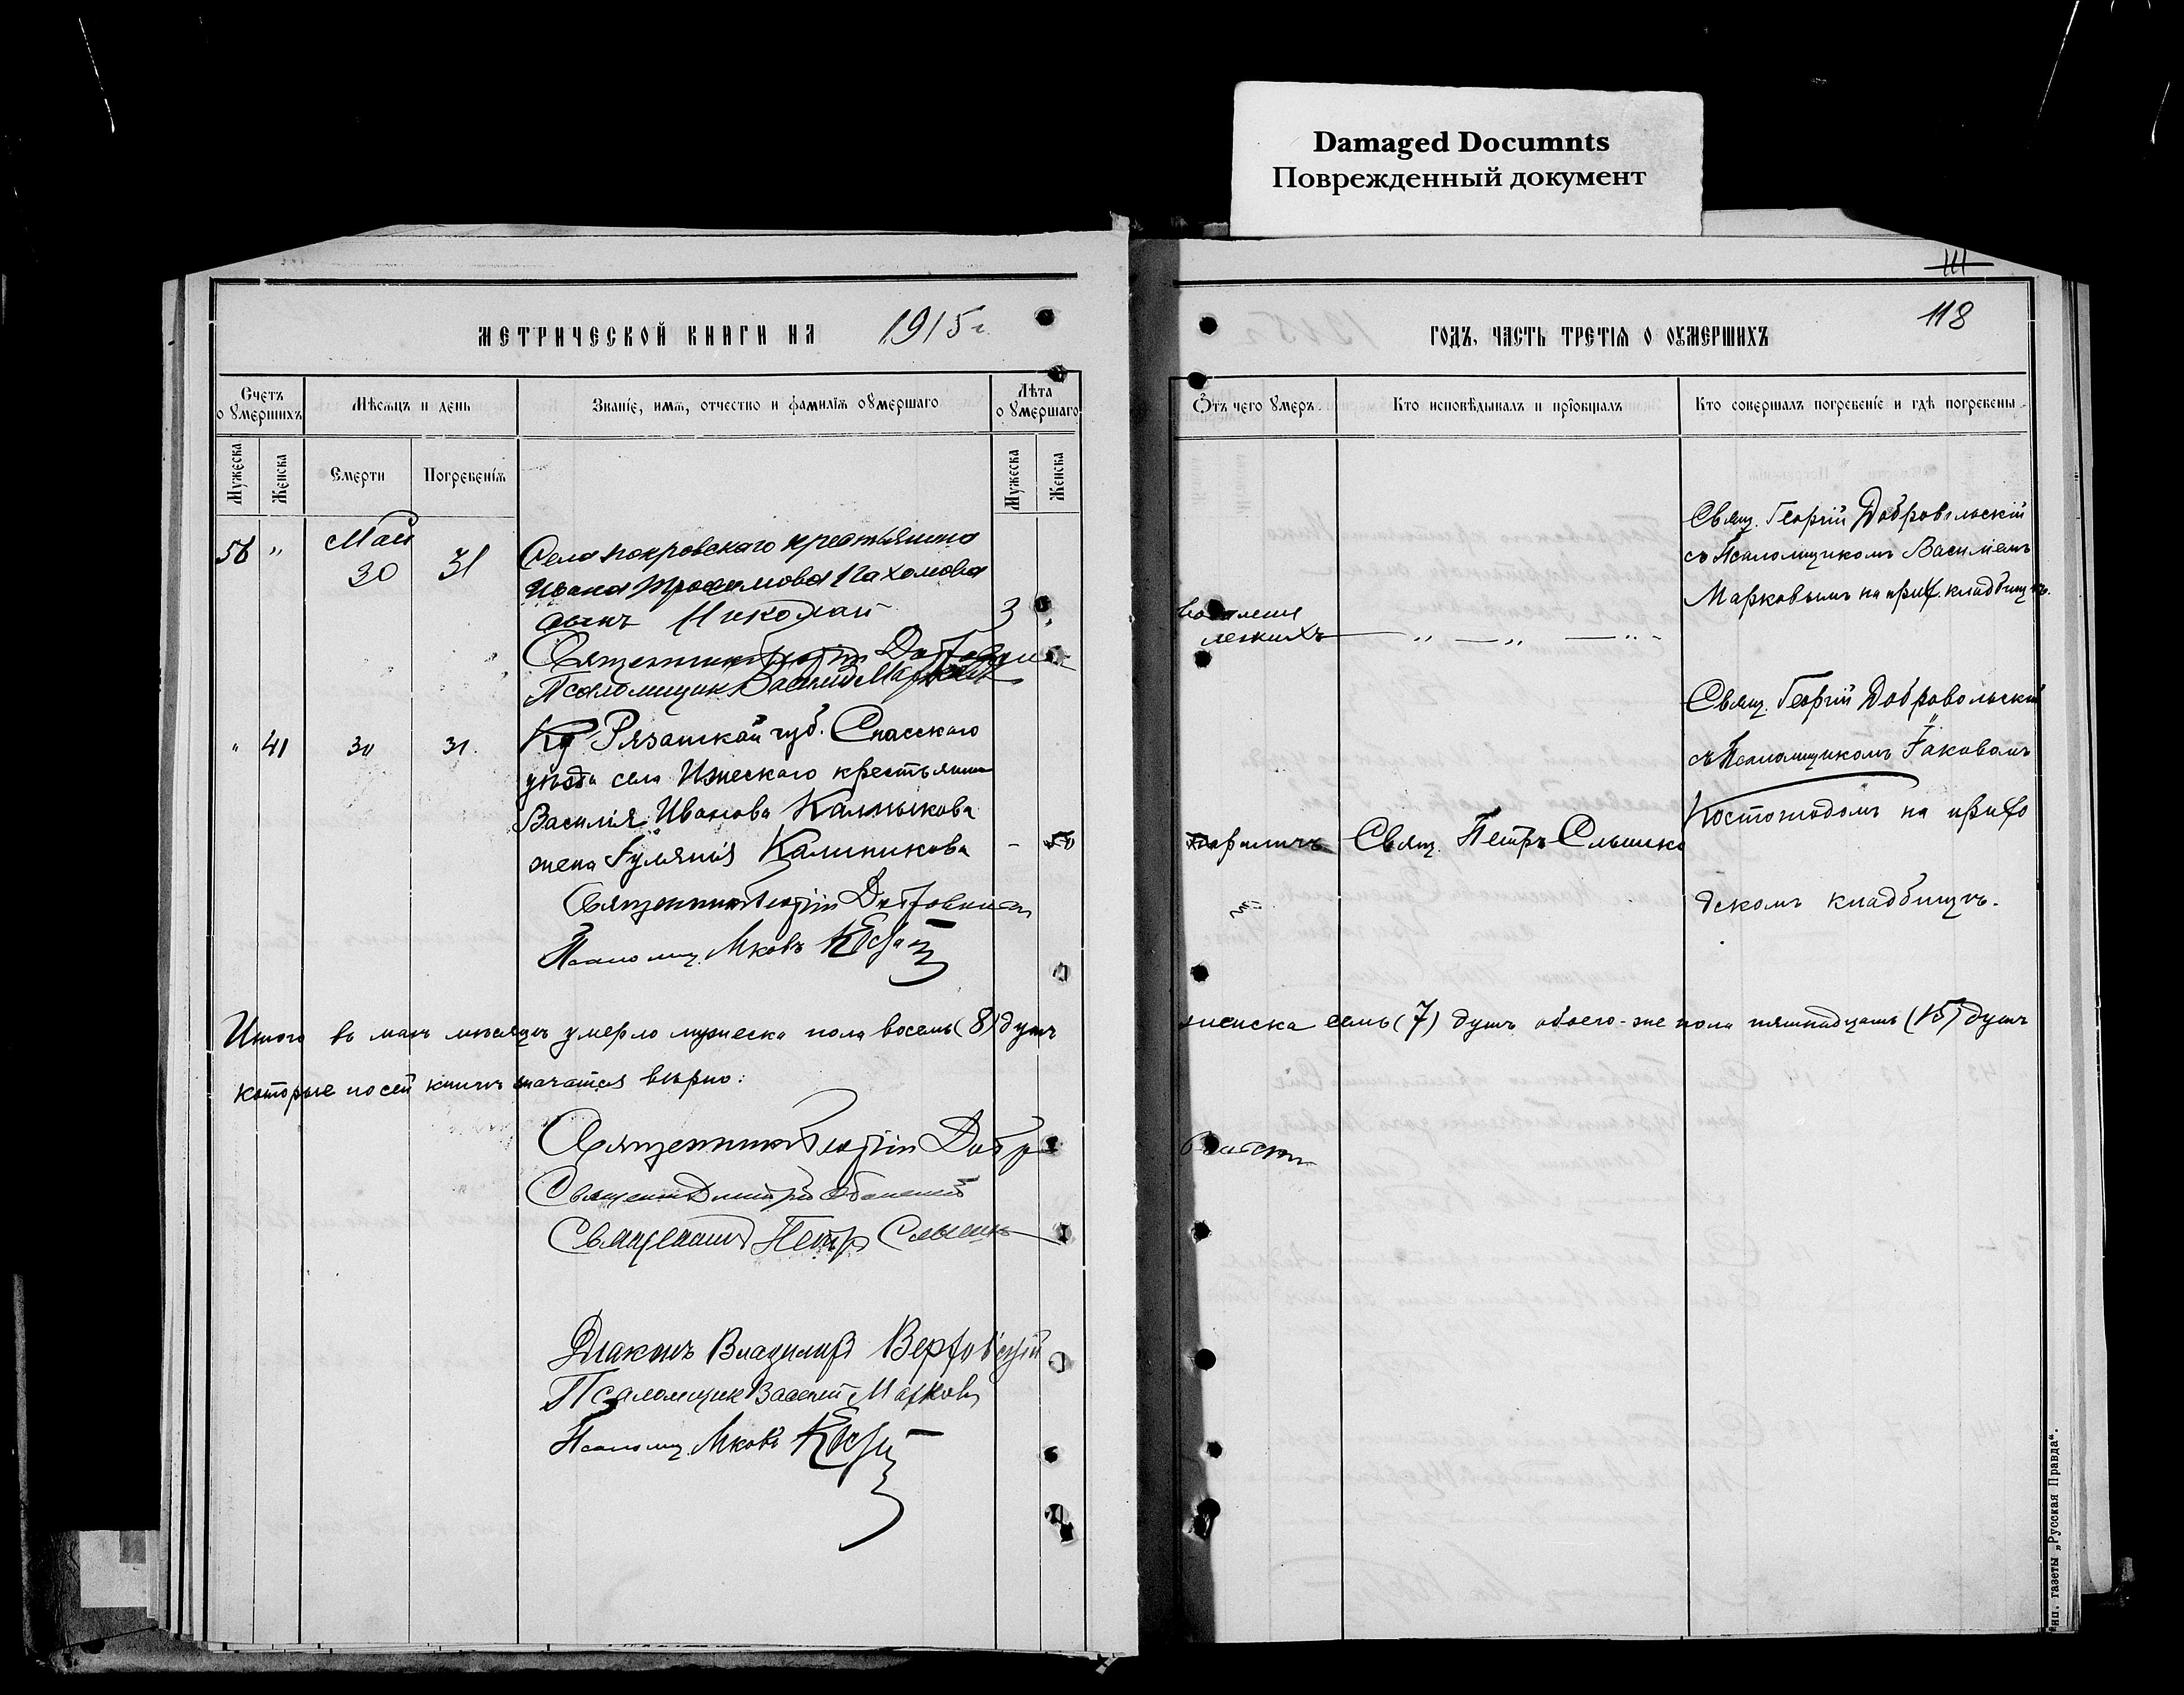 Damaged Documnts
Поврежденный документ
111
118
МЕТРИЧЕСКОЙ КНИГИ НА 1915 г.
ГОДЪ, ЧАСТЬ ТРЕТІЯ О ОУМЕРШИХЪ
Счетъ о умершихъ
Мѣсяцъ и день
Званіе, имя, отчество и фамилія оумершаго
Лѣта оумершаго
Мужеска
Женска
Смерти
Погребенія
Мужеска
Женска
Отъ чего умеръ.
Кто исповѣдывалъ и пріобщалъ
Кто совершалъ погребеніе и гдѣ погребены
56 " Май 30 31
Села Покровскаго крестьянина
Ивана Трофимова Пахомова
сынъ Николай 3
Священникъ Георгій
Псаломщик Василій Марковъ
легкихъ — " — " — " -
Свящ. Георгій Добровольскій
съ Псаломщикомъ Василіемъ
Марковымъ на прих. кладбищѣ.
" 41 30 31.
Рязанской губ. Спасскаго
уѣзда села Ижескаго крестьянина
Василія Иванова Калмыкова
жена Іуліянія - 50
Священникъ Георгій
Псаломщ. Яковъ
параличъ
Свящ. Петръ Слышко
Свящ. Георгій Добровольскій
съ Псаломщикомъ Іаковомъ
на прихо
дскомъ кладбищѣ.
Итого въ маѣ мѣсяцѣ умерло мужеска пола восемь (8) душъ
женска семь (7) душъ обоего-же пола пятнадцать (15) душъ
которые по сей книгѣ значатся вѣрно:
Священникъ Георгій Добр
Священникъ Петръ Слышко
Діаконъ Владиміръ
Псаломщик Василій Марковъ
Псаломщ. Яковъ
тип. газеты „Русская Правда“.